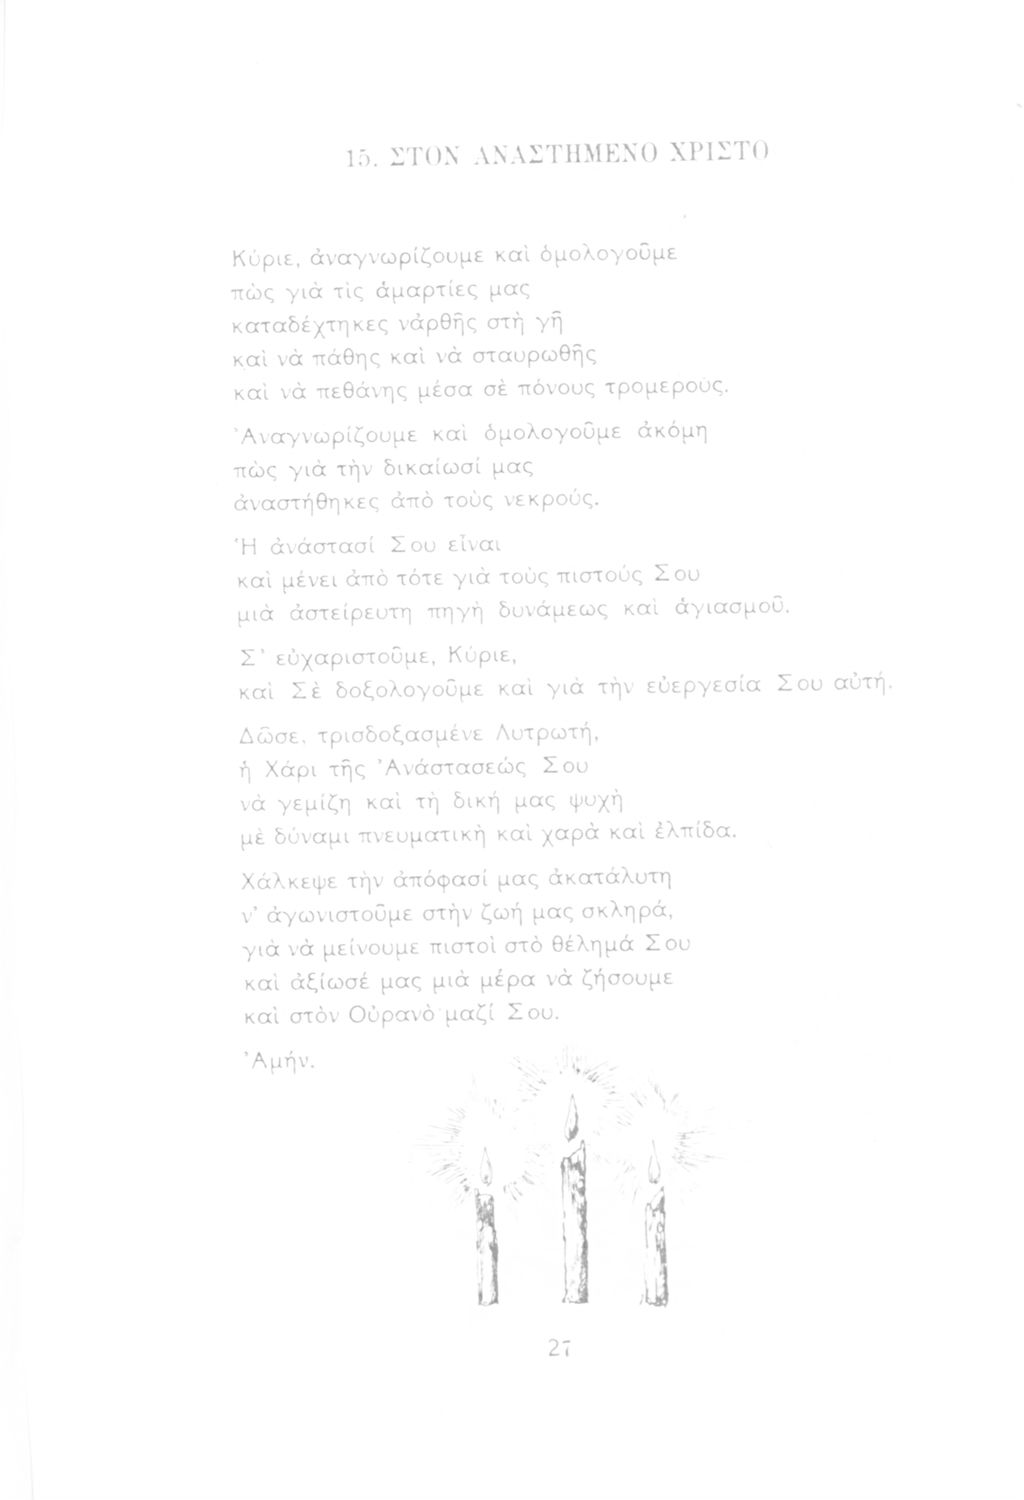 15. ΣΤΟΝ ΑΝΑΣΤΗΜΕΝΟ ΧΡΙΣΤΟ
Κύριε, ἀναγνωρίζουμε καὶ ὁμολογοῦμε
πὼς γιὰ τὶς ἁμαρτίες μας
καταδέχτηκες νἀρθῆς στὴ γῆ
καὶ νὰ πάθης καὶ νὰ σταυρωθῆς
καὶ νὰ πεθάνης μέσα σὲ πόνους τρομερούς.
Ἀναγνωρίζουμε καὶ ὁμολογοῦμε ἀκόμη
πὼς γιὰ τὴν δικαίωσί μας
ἀναστήθηκες ἀπὸ τοὺς νεκρούς.
Ἡ ἀνάστασί Σου εἶναι
καὶ μένει ἀπὸ τότε γιὰ τοὺς πιστούς Σου
μιὰ ἀστείρευτη πηγὴ δυνάμεως καὶ ἁγιασμοῦ.
Σ’ εὐχαριστοῦμε, Κύριε,
καὶ Σὲ δοξολογοῦμε καὶ γιὰ τὴν εὐεργεσία Σου αὐτή.
Δῶσε, τρισδοξασμένε Λυτρωτή,
ἡ Χάρι τῆς Ἀνάστασεώς Σου
νὰ γεμίζη καὶ τὴ δική μας ψυχὴ
μὲ δύναμι πνευματικὴ καὶ χαρὰ καὶ ἐλπίδα.
Χάλκεψε τὴν ἀπόφασί μας ἀκατάλυτη
ν’ ἀγωνιστοῦμε στὴν ζωή μας σκληρά,
γιὰ νὰ μείνουμε πιστοὶ στὸ θέλημά Σου
καὶ ἀξίωσέ μας μιὰ μέρα νὰ ζήσουμε
καὶ στὸν Οὐρανὸ μαζί Σου.
Ἀμήν.
27